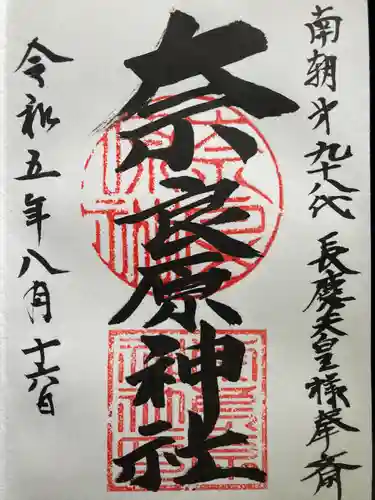 南朝第九十八代長慶天皇様奉斎
奈良原神社
令和五年八月十六日